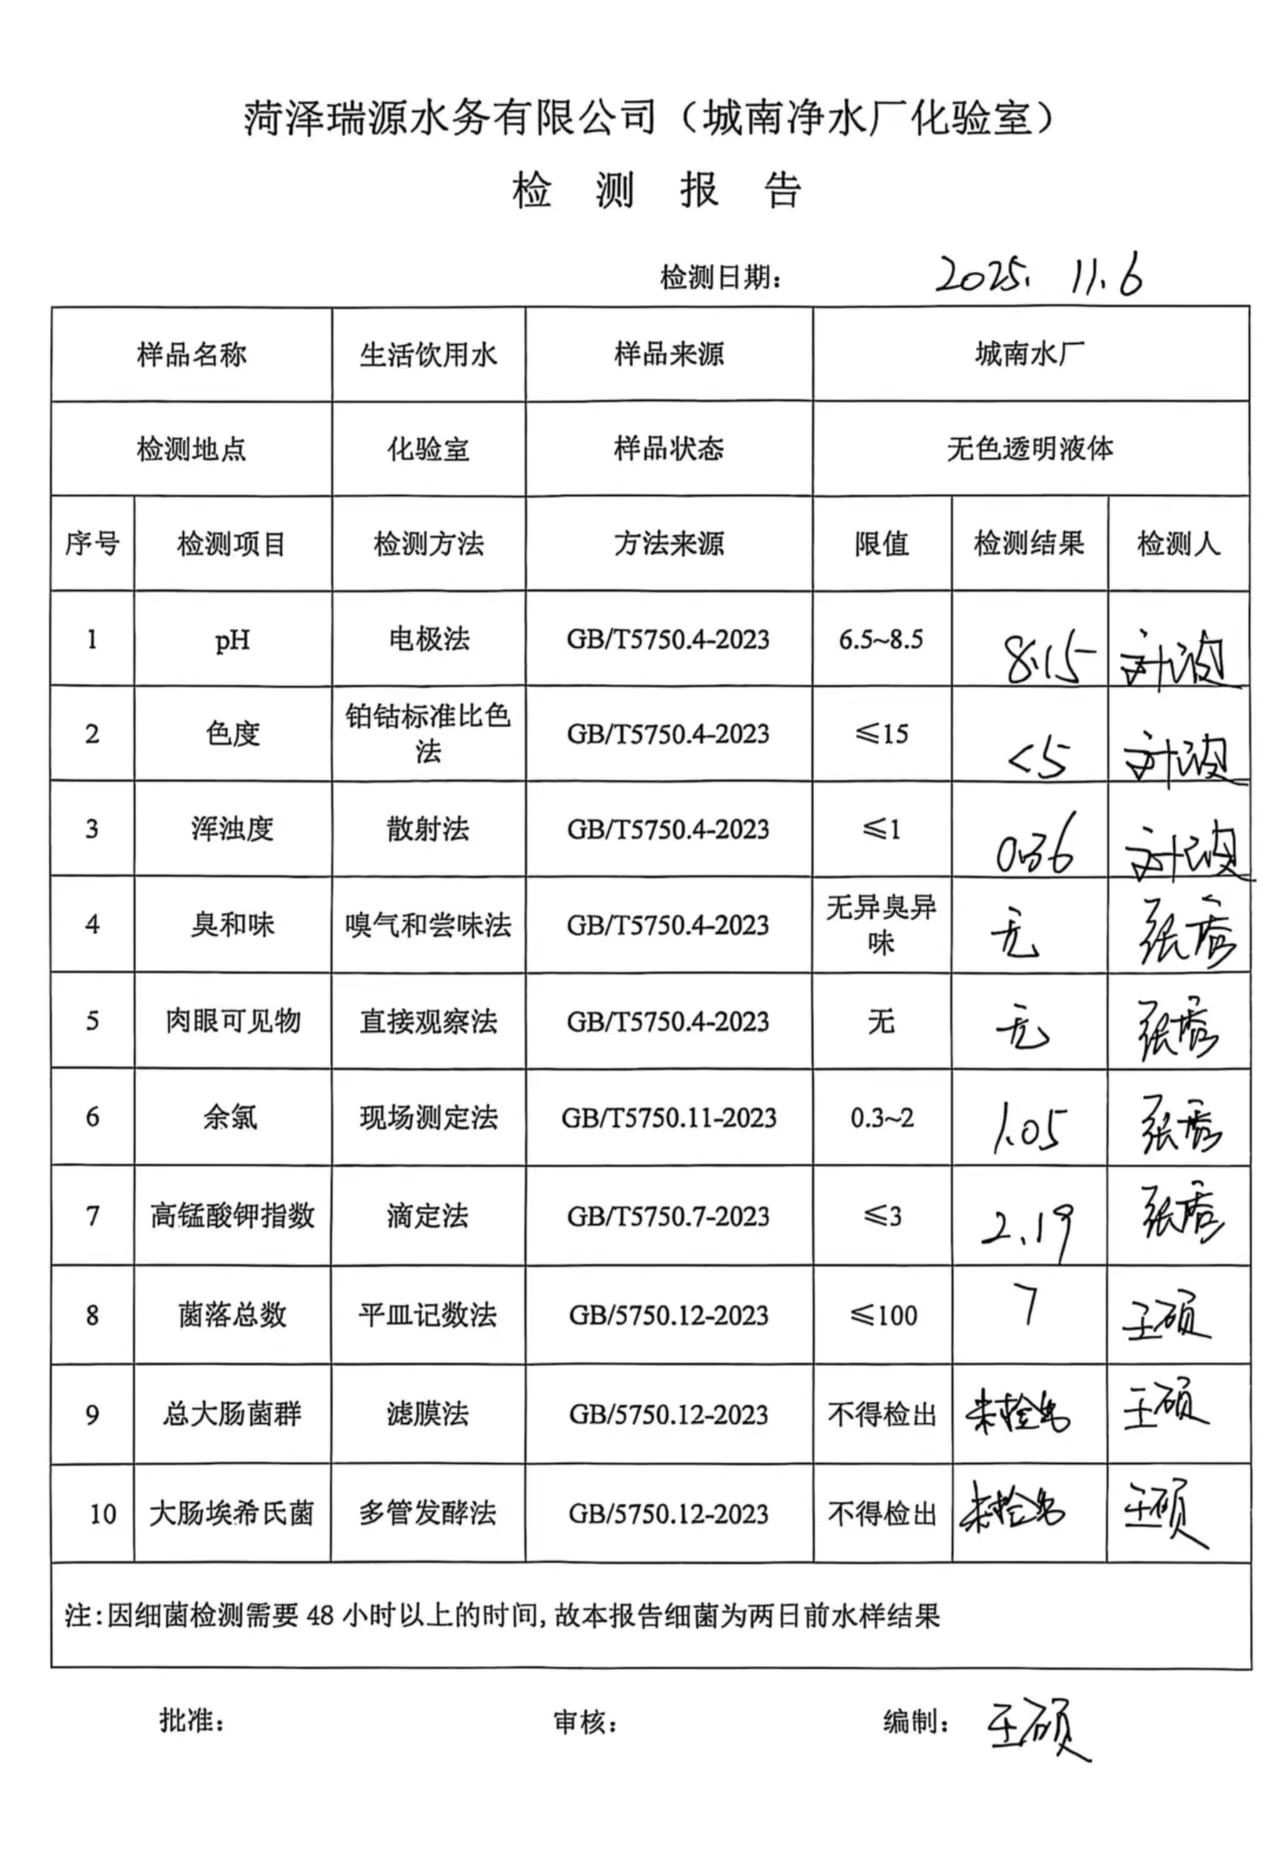 菏泽瑞源水务有限公司（城南净水厂化验室）
检 测 报 告
检测日期： 2025. 11.6
样品名称 生活饮用水 样品来源 城南水厂
检测地点 化验室 样品状态 无色透明液体
序号 检测项目 检测方法 方法来源 限值 检测结果 检测人
1 pH 电极法 GB/T5750.4-2023 6.5~8.5 8.15 刘波
2 色度 铂钴标准比色法 GB/T5750.4-2023 ≤15 <5 刘波
3 浑浊度 散射法 GB/T5750.4-2023 ≤1 0.36 刘波
4 臭和味 嗅气和尝味法 GB/T5750.4-2023 无异臭异味 无 张
5 肉眼可见物 直接观察法 GB/T5750.4-2023 无 无 张
6 余氯 现场测定法 GB/T5750.11-2023 0.3~2 1.05 张
7 高锰酸钾指数 滴定法 GB/T5750.7-2023 ≤3 2.19 张
8 菌落总数 平皿记数法 GB/5750.12-2023 ≤100 7 王硕
9 总大肠菌群 滤膜法 GB/5750.12-2023 不得检出 未检出 王硕
10 大肠埃希氏菌 多管发酵法 GB/5750.12-2023 不得检出 未检出 王硕
注：因细菌检测需要 48 小时以上的时间，故本报告细菌为两日前水样结果
批准： 审核： 编制： 王硕